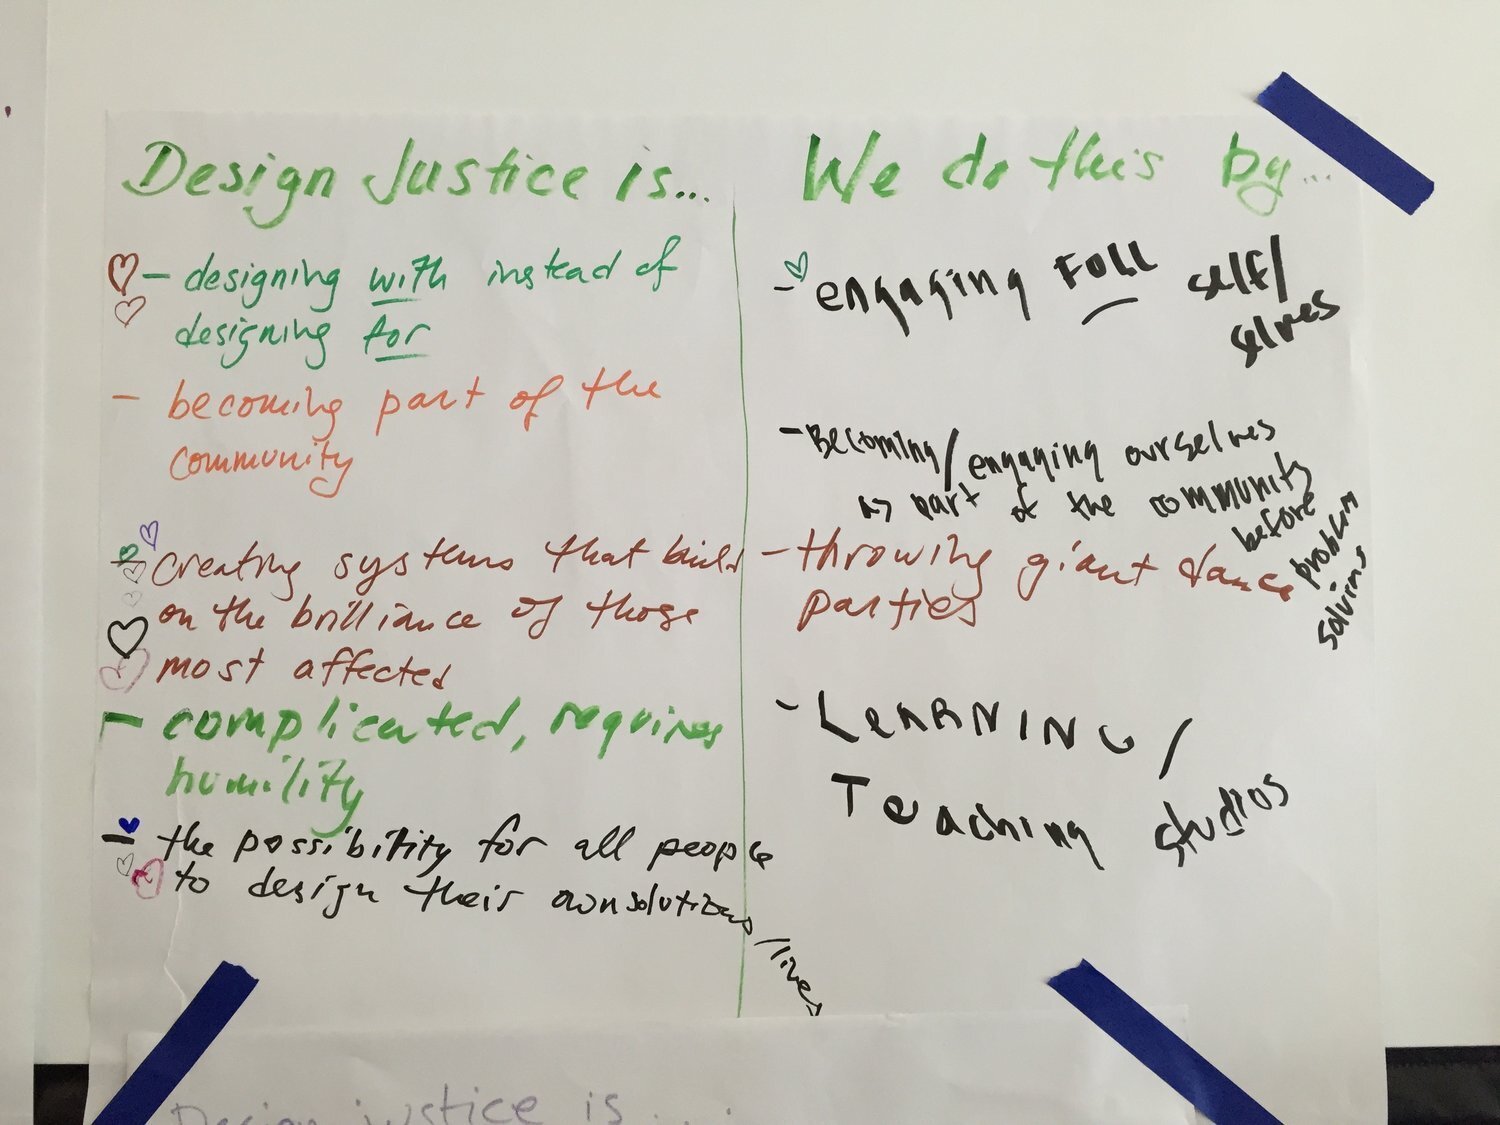 Design Justice is...
- designing with instead of
designing for
- becoming part of the
community
- creating systems that build
on the brilliance of those
most affected
- complicated, requires
humility
- the possibility for all people
to design their own solutions
/lives
We do this by...
- engaging FULL self/
selves
- Becoming/engaging ourselves
as part of the community
before
problem
solving
- throwing giant dance
parties
- LEARNING/
Teaching studios
Design justice is....